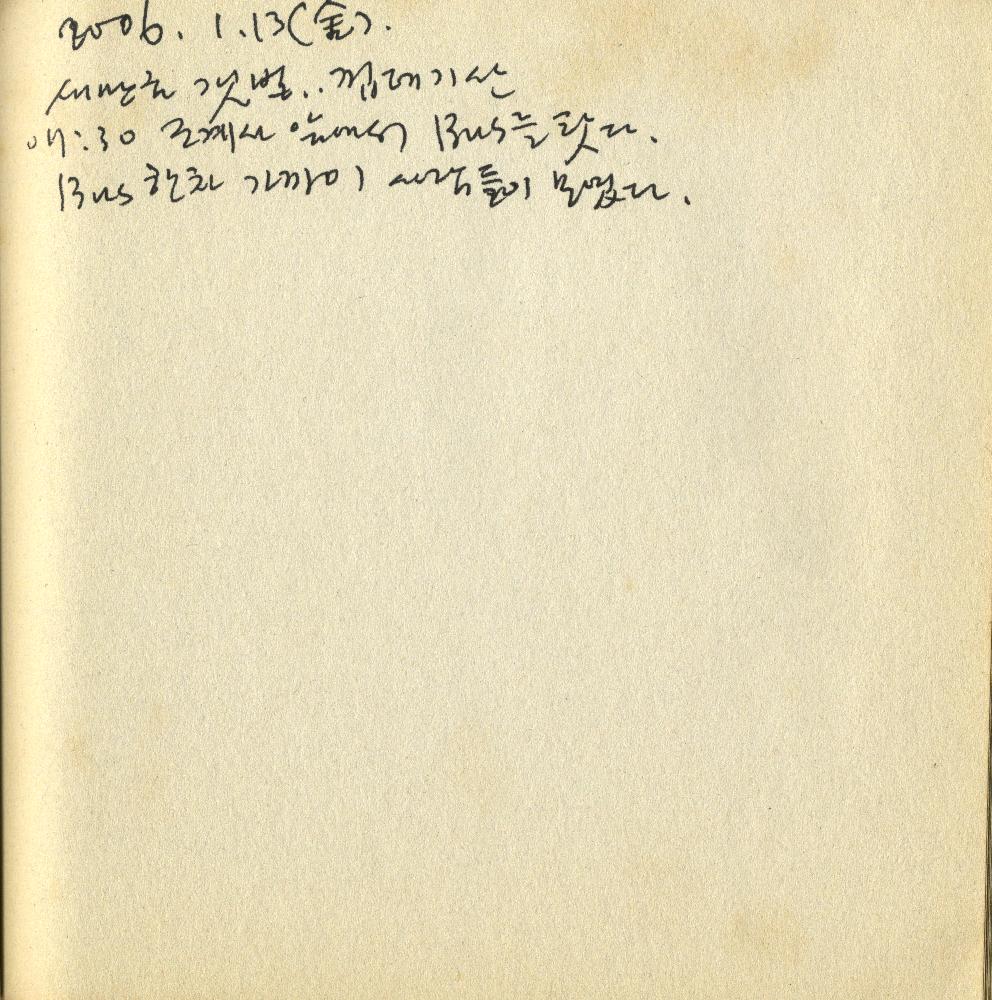 2006. 1.13(金).
새만금 갯벌.. 껍데기산
07:30 조계사 앞에서 Bus를 탓다.
Bus 한차 가까이 사람들이 모였다.